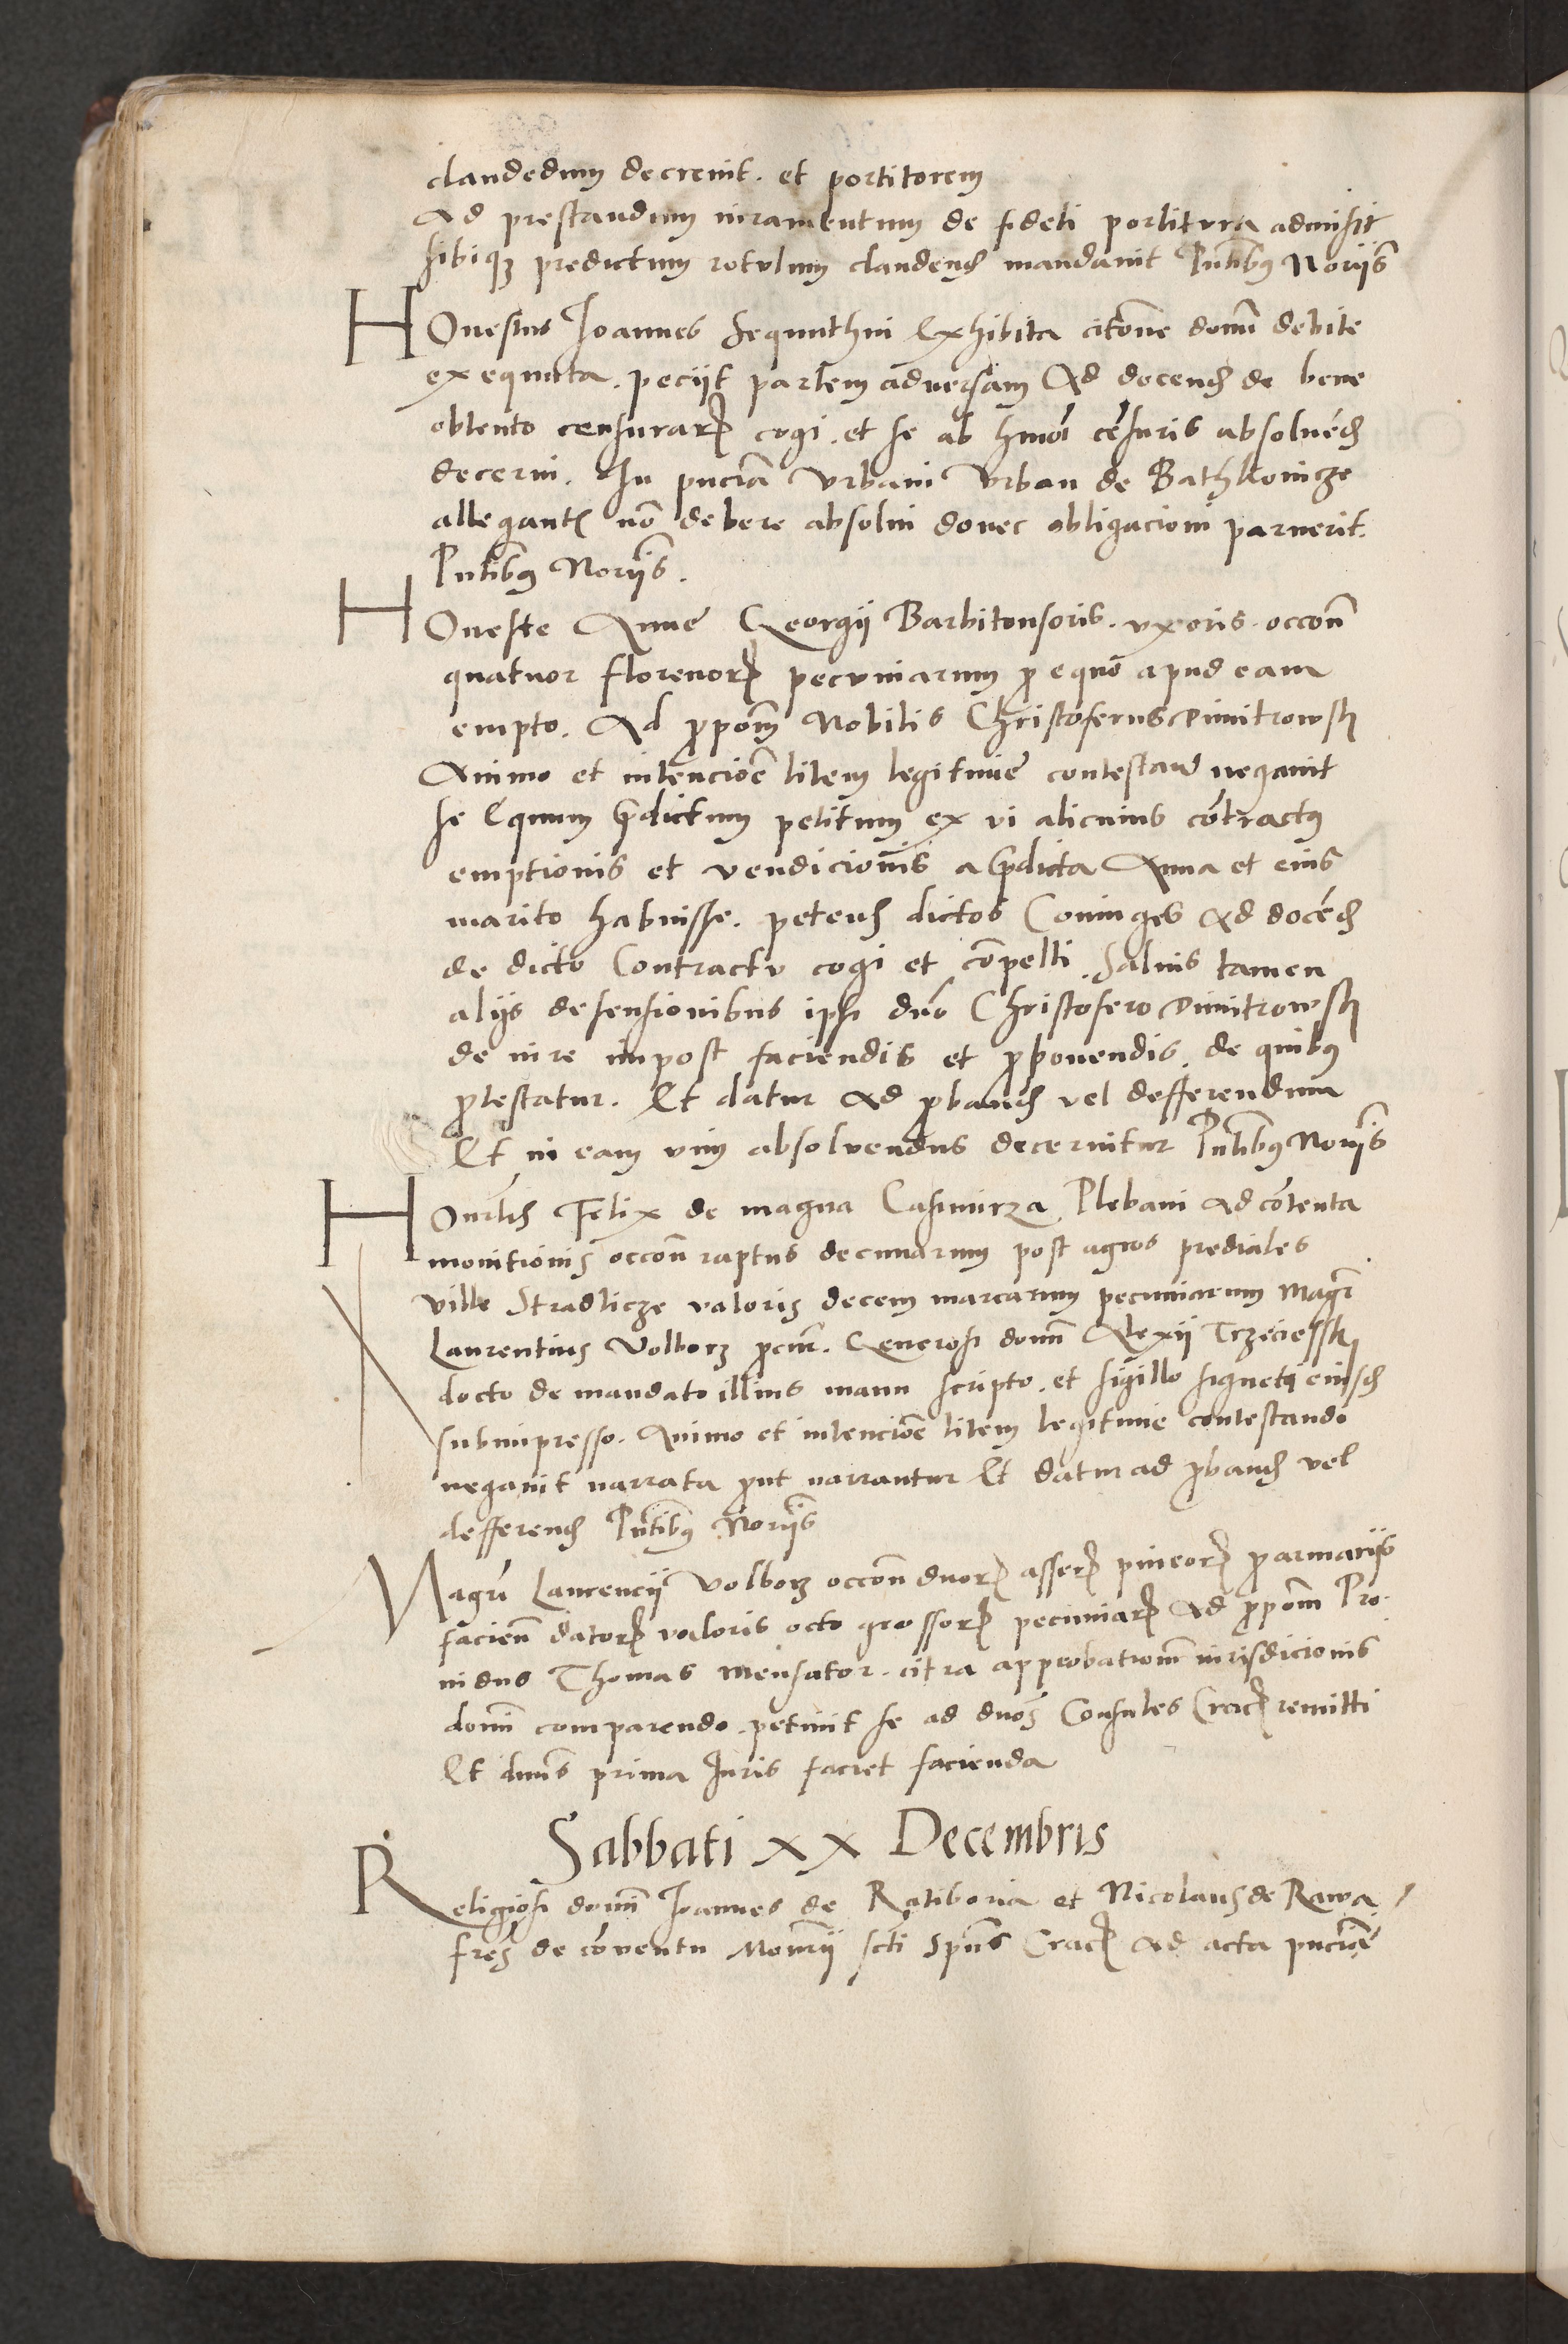 claudedum decrevit. et portitorem
Ad prestandum iuramentum de fideli portitvra admisit
sibiqz predictum rotvlum claudend mandavit Pntibus Noriis
Honestus Ioannes Sequuthini Exhibita citone domi debite
exequuta. peciit partem adversam Ad docend de bene
obtento censurar cogi. et se ab hmoi cēsuris absoluēd
decerni. In pncia Vrbani Vrban de Bathkovicze
allegant nō debere absolui donec obligacioni paruerit.
Pntibus Noriis.
Honeste Anne Georgii Barbitonsoris. vxoris. occōn
quatuor florenor pecvniarum p equo apud eam
empto. Ad ppōm Nobilis Christoferus Dimitrowsk
Animo et intencioē litem legitime contestand negavit
se Equum pdictum petitum ex vi alicuius cōtractus
emptionis et vendicionis a pdicta Anna et eius
marito habuisse. petend dictos Coniuges Ad docēd
de dicto Contractv cogi et cōpelli. Salvis tamen
aliis defensionibus ipsi dno Christofero Dimitrowsk
de iure impost faciendis et pponendis. de quibus
ptestatur. Et datur Ad pband vel defferendum
Et in eam vim absolvendus decernitur Pntibus Noriis
Honrlis Felix de magna Casimirza Plebani Ad cōtenta
monitionis occōn raptus decimarum post agros prediales
ville Stradlicze valoris decem marcarum pecuniarum Magr
Laurentius Volborz pcur. Generosi domi Alexii Trzeciessk
docto de mandato illius manu scripto. et sigillo signeti eiusd
subimpresso. Animo et intencioē litem legitime contestando
negavit narrata put narrantur Et datur ad pband vel
defferend Pntibus Noriis
Magri Laurencii Volborz occōn duor asser pineor p armariis
faciend dator valoris octo grossor pecuniar Ad ppōm Pro-
uidus Thomas Mensator. citra approbationē iurisdicionis
domi comparendo. petiuit se ad dnos Consules Crac remitti
Et dmus prima Iuris faciet facienda
Sabbati xx Decembris
Religiosi domi Ioannes de Ratiboria et Nicolaus de Rawa
fres de cōuentu Monrii scti Spūs Crac Ad acta pncia